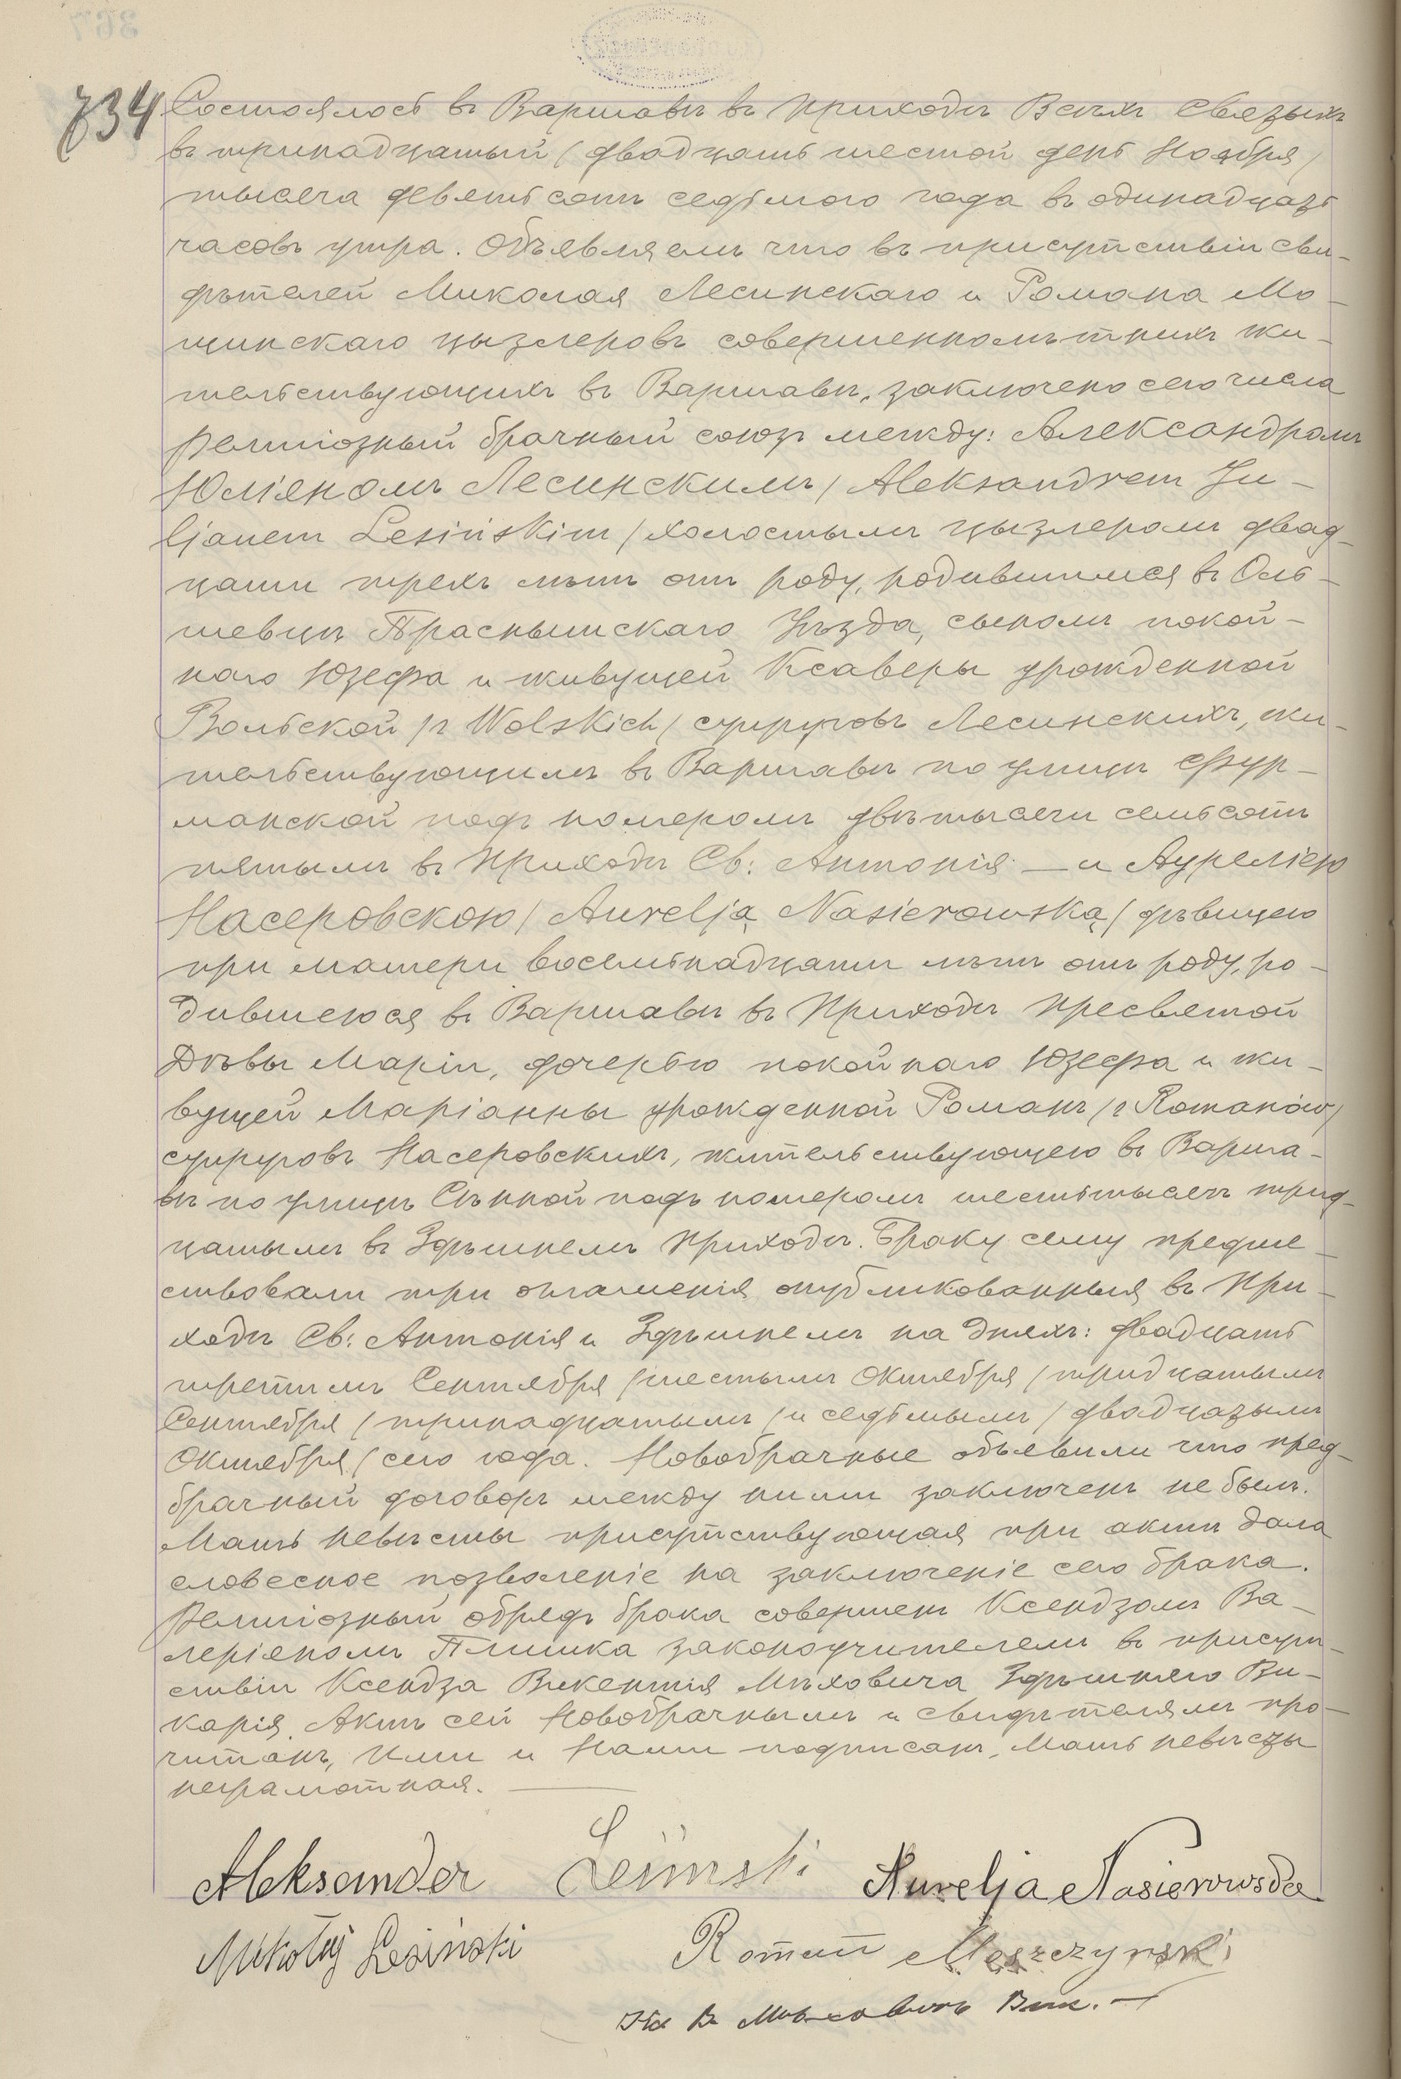 734
Состоялось въ Варшавѣ въ Приходѣ Всѣхъ Святыхъ
въ тринадцатый / двадцать шестой день Ноября /
тысяча девятьсотъ седьмого года въ одинадцать
часовъ утра. Объявляемъ что въ присутствіи сви-
дѣтелей Миколая Лесинскаго и Романа Мо-
щинскаго цызлеровъ совершеннолѣтнихъ жи-
тельствующихъ въ Варшавѣ, заключено сего числа
религіозный брачный союзъ между: Александромъ
Юліяномъ Лесинскимъ / Aleksandrem Ju-
ljanem Lesińskim / холостымъ цызлеромъ двад-
цати трехъ лѣтъ отъ роду, родившимся въ Оль-
шевцѣ Праснышскаго Уѣзда, сыномъ покой-
наго Юзефа и живущей Ксаверы урожденной
Вольской /z Wolskich/ супруговъ Лесинскихъ, жи-
тельствующимъ въ Варшавѣ по улицѣ Фур-
манской подъ номеромъ двѣтысячи семьсотъ
пятымъ въ Приходѣ Св: Антонія — и Ауреліею
Насеровскою / Aurelją Nasierowską / дѣвицею
при матери восемьнадцати лѣтъ отъ роду, ро-
дившеюся въ Варшавѣ въ Приходѣ Пресвятой
Дѣвы Маріи, дочерью покойнаго Юзефа и жи-
вущей Маріанны урожденной Романъ /z Romanów/
супруговъ Насеровскихъ, жительствующею въ Варша-
вѣ по улицѣ Сѣнной подъ номеромъ шестьтысячъ трид-
цатымъ въ Здѣшнемъ Приходѣ. Браку сему предше-
ствовали три оглашенія опубликованныя въ При-
ходѣ Св: Антонія и Здѣшнемъ на дняхъ: двадцать
третьимъ Сентября / шестымъ Октября / тридцатымъ
Сентября / тринадцатымъ / и седьмымъ / двадцатымъ
Октября / сего года. Новобрачные объявили что пред-
брачный договоръ между ними заключенъ не былъ.
Мать невѣсты присутствующая при актѣ дала
словесное позволеніе на заключеніе сего брака.
Религіозный обрядъ брака совершенъ Ксендзомъ Ва-
леріяномъ Плишка законоучителемъ въ присут-
ствіи Ксендза Викентія Мѣховича Здѣшняго Ви-
карія. Актъ сей Новобрачнымъ и свидѣтелямъ про-
читанъ, Ими и Нами подписанъ, Мать невѣсты
неграмотная.
Aleksander Lesiński Aurelja Nasierowska
Mikołaj Lesiński Roman Moszczynski
Кс В Мѣховичъ Вик.